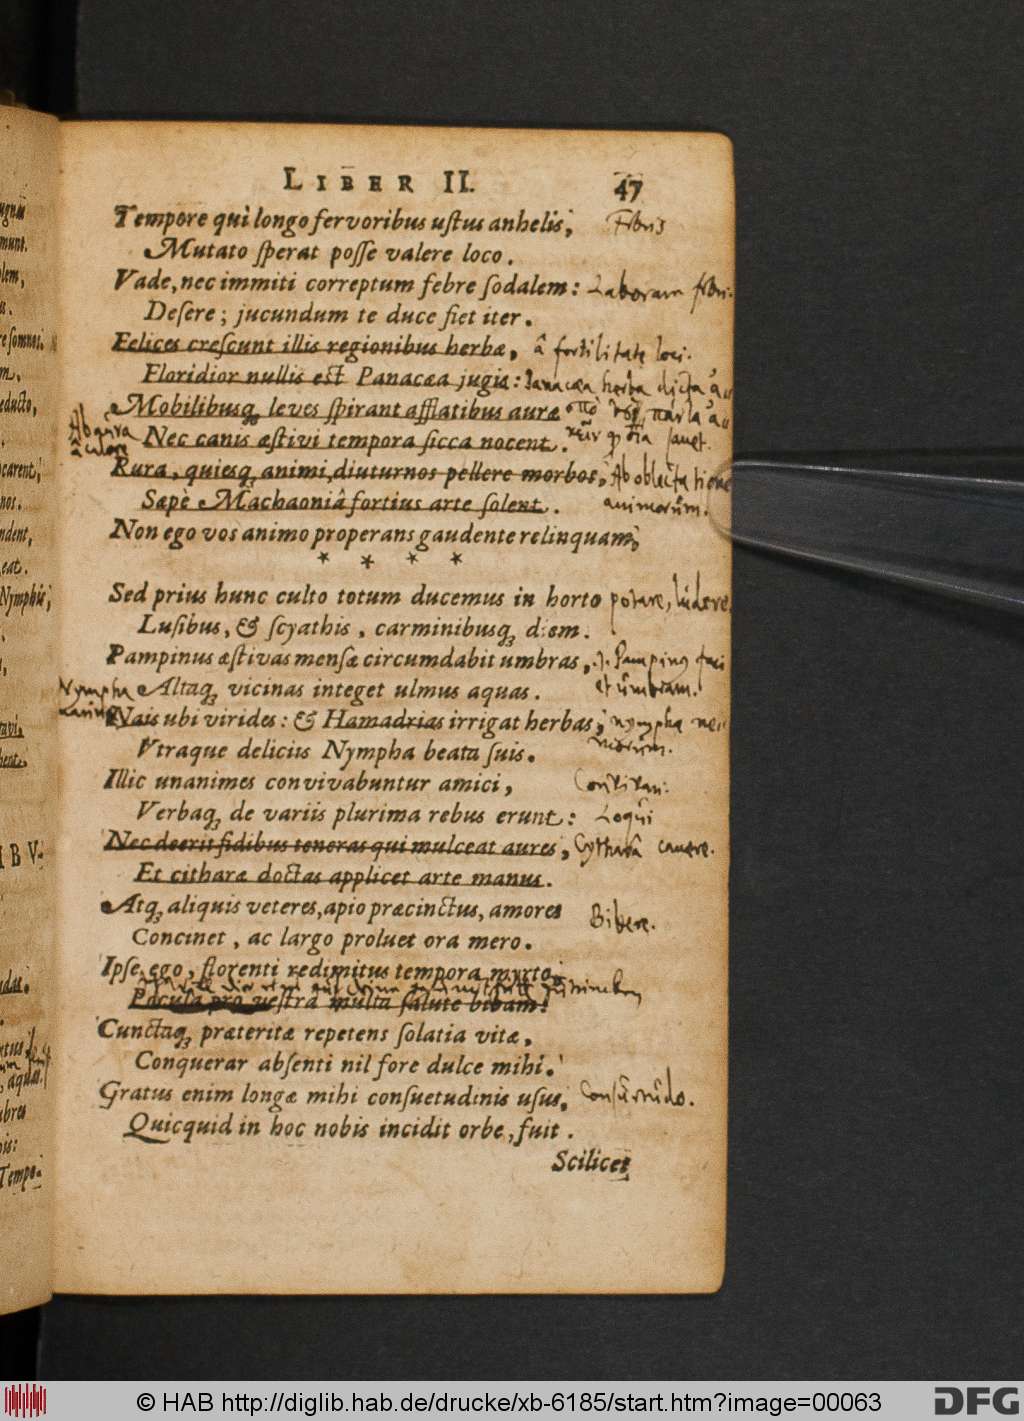 LIBER II. 47
Tempore qui longo fervoribus ustus anhelis, Fibris
Mutato sperat posse valere loco.
Vade, nec immiti correptum febre sodalem: Laboram febri.
Desere; jucundum te duce fiet iter.
Felices crescunt illis regionibus herbæ, â fertilitate loci.
Floridior nullis est Panacæa jugis: Panacæa herba dicta
Mobilibusq́; leves spirant afflatibus auræ
Ab aura
Nec canis æstivi tempora sicca nocent.
â calore
Rura, quiesq́; animi, diuturnos pellere morbos, Ab oblectatione
Sæpè Machaoniâ fortius arte solent. animorûm.
Non ego vos animo properans gaudente relinquam;
* * * *
Sed prius hunc culto totum ducemus in horto potare, ludere
Lusibus, & scyathis, carminibusq́; diem.
Pampinus æstivas mensæ circumdabit umbras, Pampinus faci
et ûmbram.
Nympha
Altaq́; vicinas integet ulmus aquas.
Nais ubi virides: & Hamadrias irrigat herbas; nympha ne-
morûm.
Vtraque deliciis Nympha beata suis.
Illic unanimes convivabuntur amici, Convivari.
Verbaq́; de variis plurima rebus erunt: Loqûi
Nec deerit fidibus teneras qui mulceat aures, Cytharâ canere.
Et citharæ doctas applicet arte manus.
Atq́; aliquis veteres, apio præcinctus, amores Bibere.
Concinet, ac largo proluet ora mero.
Ipse ego, florenti redimitus tempora myrto,
Pocula pro vestra multa salute bibam:
Cunctaq́; præteritæ repetens solatia vitæ,
Conquerar absenti nil fore dulce mihi.
Gratus enim longæ mihi consuetudinis usus, Consûetûdo.
Quicquid in hoc nobis incidit orbe, fuit.
Scilicet
© HAB http://diglib.hab.de/drucke/xb-6185/start.htm?image=00063
DFG